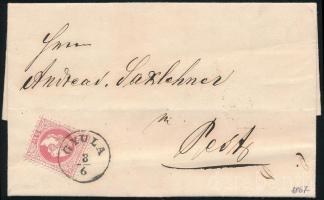 Herrn
Andreas Saxlehner
in
Pest
GYULA
3/6
1867